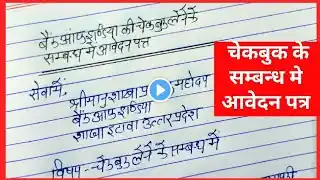 बैंक आफ इण्डिया की चेकबुक लेने के
सम्बन्ध मे आवेदन पत्र
सेवा में,
श्रीमान शाखा प्र महोदय
बैंक आफ इण्डिया
शाखा इटावा उत्तर प्रदेश
विषय - चेकबुक लेने के सम्बन्ध में
चेकबुक के
सम्बन्ध मे
आवेदन पत्र